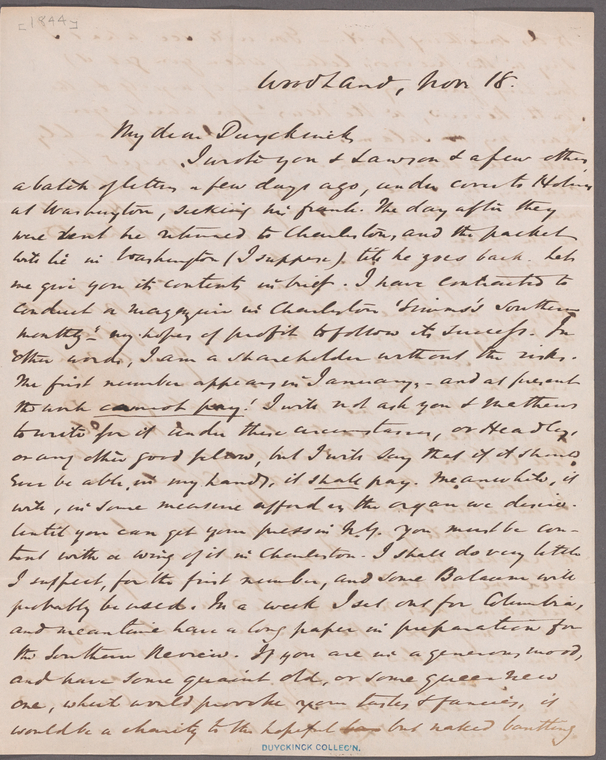 [1844]
Woodland, Nov 18.
My dear Duyckinck
I wrote you & Lawson & a few others
a batch of letters a few days ago, under cover to Holmes
at Washington, seeking his frank. The day after they
were sent he returned to Charleston, and the packet
will lie in Washington (I suppose) till he goes back. Let
me give you its contents in brief. I have contracted to
conduct a magazine in Charleston 'Simms's Southern
Monthly'- my hopes of profit to follow its success. In
other words, I am a shareholder without the risks.
The first number appears in January,- and at present
the work cannot pay! I will not ask you & Mathews
to write for it under these circumstances, or Headley,
or any other good fellow, but I will say that if it should
ever be able, in my hands, it shall pay. Meanwhile, it
will, in some measure afford us the organ we desire.
Until you can get your press in N.Y. you must be con-
tent with a wing of it in Charleston. I shall do very little
I suspect, for the first number, and some Balaam will
probably be used. In a week I set out for Columbia,
and meantime have a long paper in preparation for
the Southern Review. If you are in a generous mood,
and have some quaint old, or some queer new
one, which would provoke your tastes & fancies, it
would be a charity to the hopeful but naked bantling
DUYCKINCK COLLEC'N.